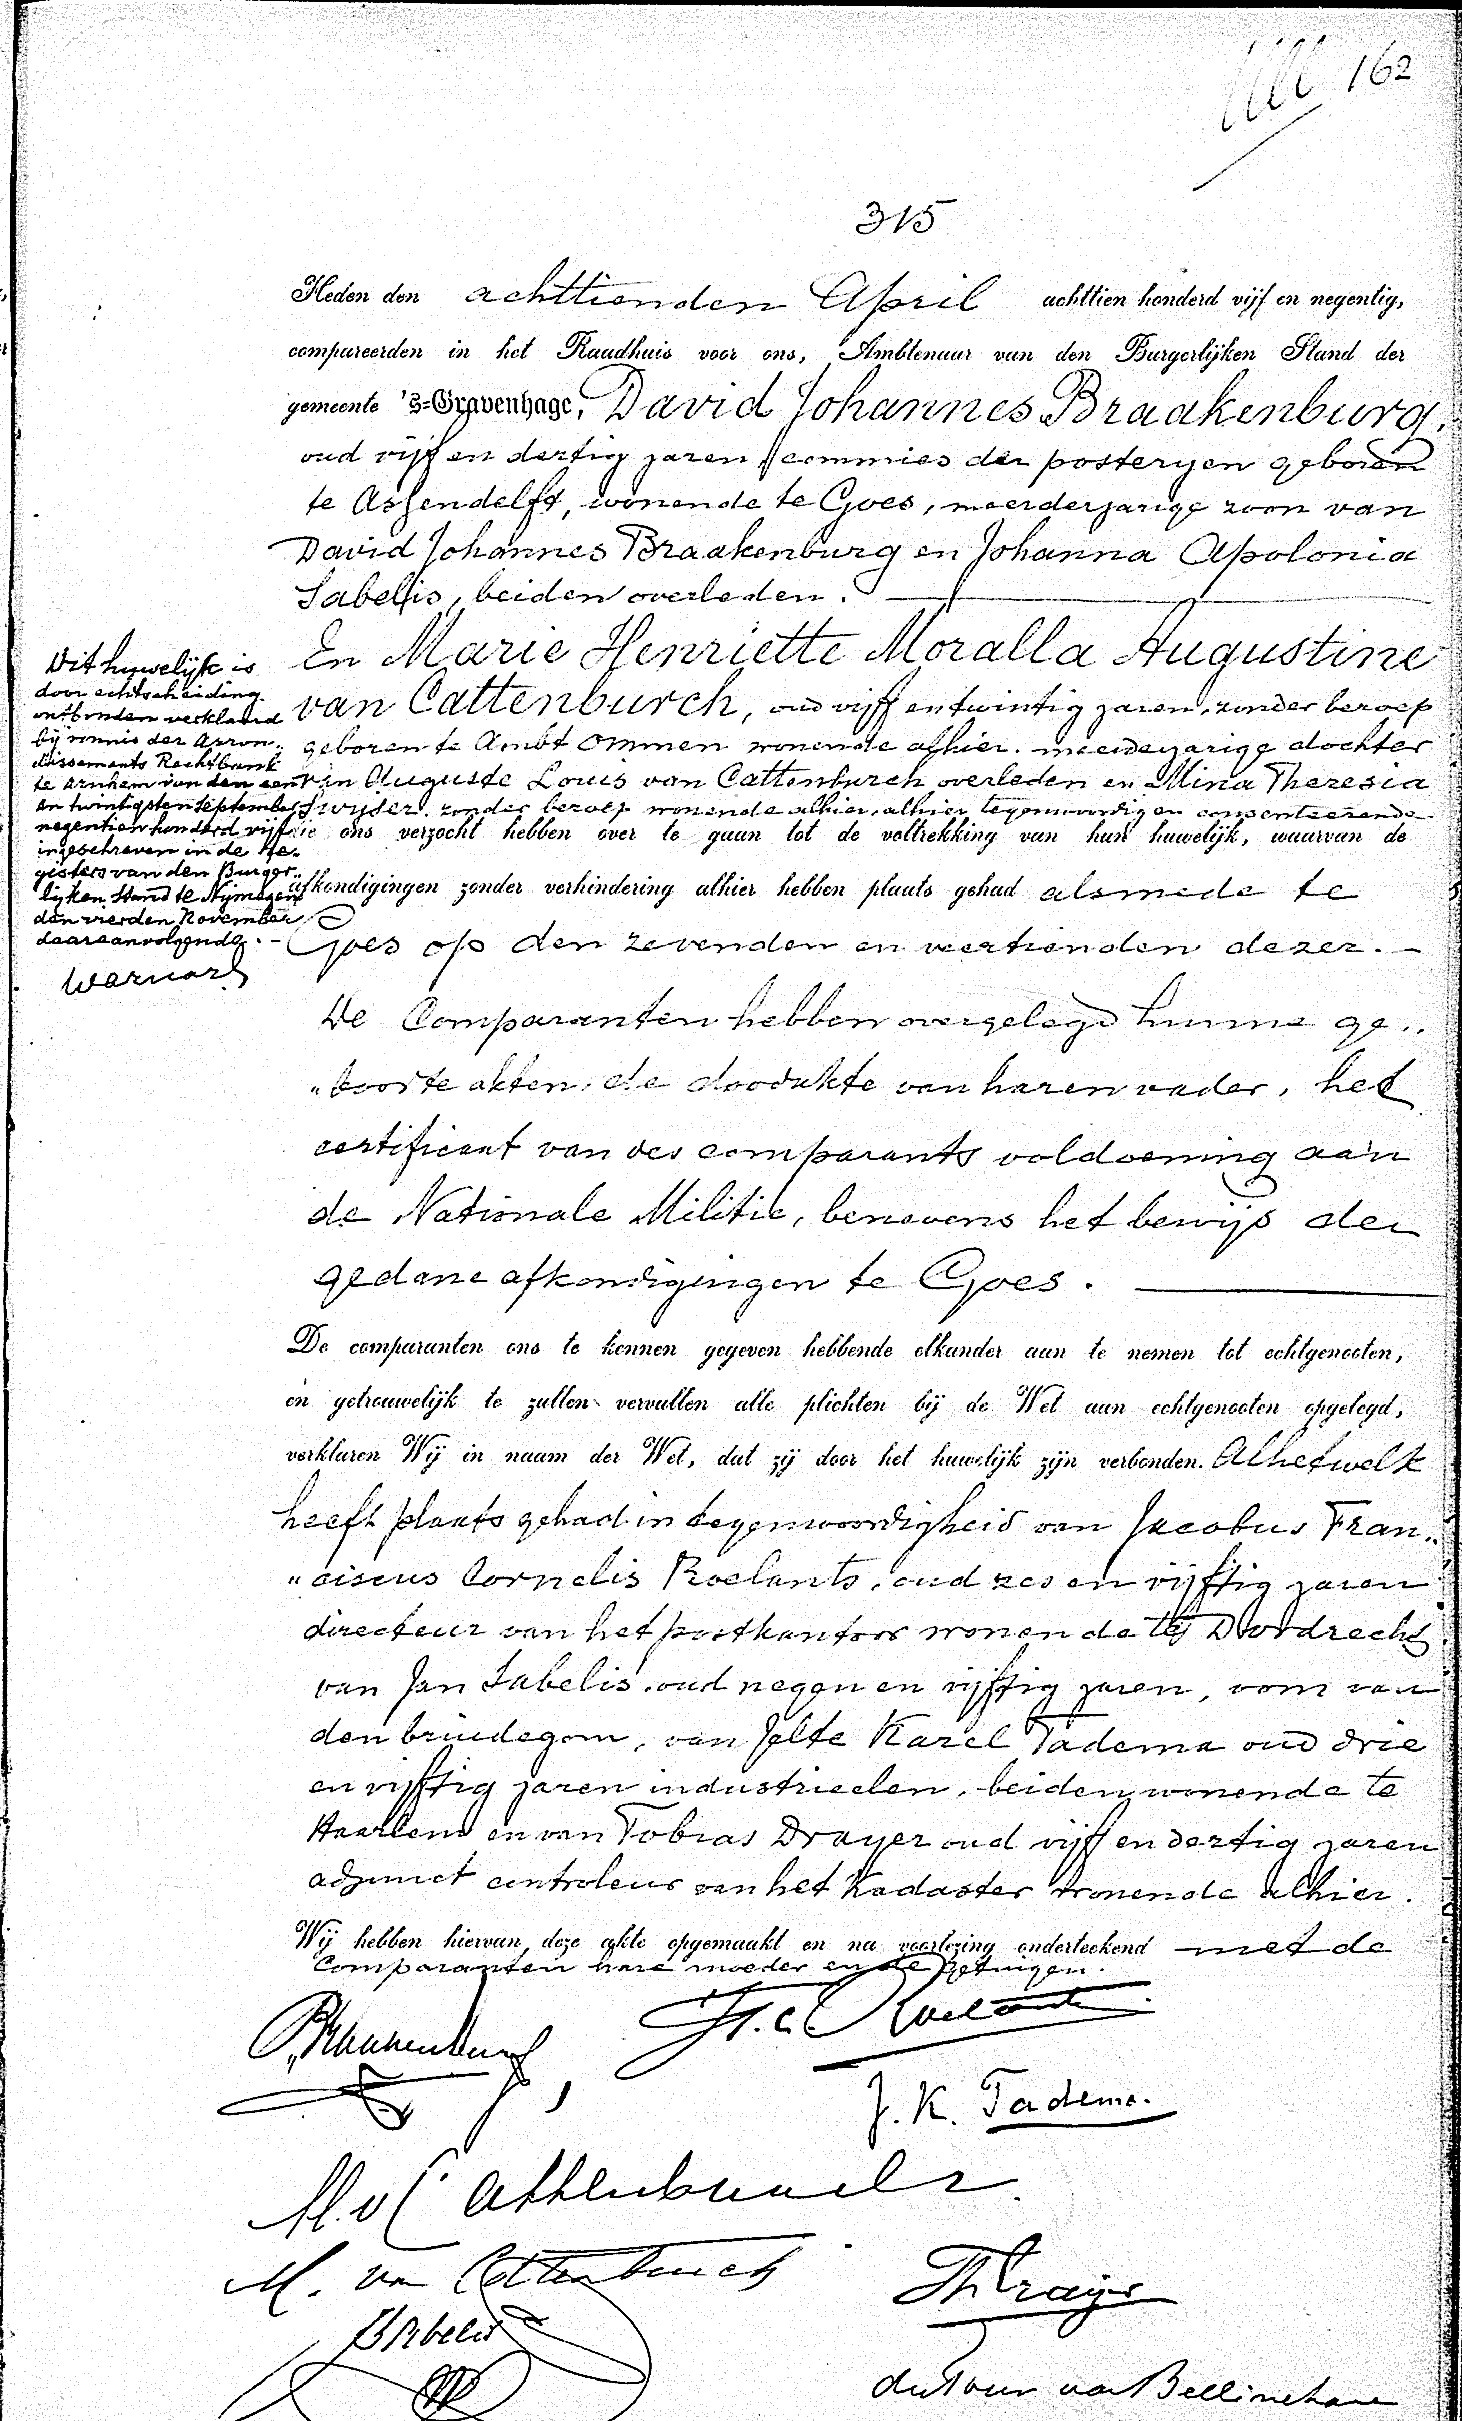 162
315
Heden den achttienden April achttien honderd vijf en negentig,
compareerden in het Raadhuis voor ons, Ambtenaar van den Burgerlijken Stand der
gemeente 's-Gravenhage, David Johannes Braakenburg,
oud vijf en dertig jaren, commies der posteryen geboren
te Assendelft, wonende te Goes, meerderjarige zoon van
David Johannes Braakenburg en Johanna Apolonia
Sabelis, beiden overleden.
En Marie Henriette Moralla Augustine
van Cattenburch, oud vijf en twintig jaren, zonder beroep
geboren te Ambt Ommen wonende alhier. meerderjarige dochter
van Auguste Louis van Cattenburch overleden en Mina Theresia
zonder beroep wonende alhier, alhier tegenwoordig en consenteerende
die ons verzocht hebben over te gaan tot de voltrekking van hun huwelijk, waarvan de
afkondigingen zonder verhindering alhier hebben plaats gehad alsmede te
Goes op den zevenden en veertienden dezer.
Dit huwelijk is
door echtscheiding
ontbonden verklaard
bij vonnis der Arron-
dissements Rechtbank
te Arnhem van den een
en twintigsten September
negentien honderd vijf
ingeschreven in de Re-
gisters van den Burger-
lijken Stand te Nijmegen
den vierden November
daaraanvolgende.
De Comparanten hebben overgelegd hunne ge-
boorte akten, de doodakte van haren vader, het
certificaat van des comparants voldoening aan
de Nationale Militie, benevens het bewijs der
gedane afkondigingen te Goes.
De comparanten ons te kennen gegeven hebbende elkander aan te nemen tot echtgenooten,
en getrouwelijk te zullen vervullen alle plichten bij de Wet aan echtgenooten opgelegd,
verklaren Wij in naam der Wet, dat zij door het huwelijk zijn verbonden. Alhetwelk
heeft plaats gehad in tegenwoordigheid van Jacobus Fran-
ciscus Cornelis Roelants, oud zes en vijftig jaren
directeur van het postkantoor wonende te Dordrecht
van Jan Sabelis, oud negen en vijftig jaren, oom van
den bruidegom, van Jelte Karel Tadema oud drie
en vijftig jaren industrieelen, beiden wonende te
Haarlem en van Tobias Drayer oud vijf en dertig jaren
adjunct controleur van het Kadaster wonende alhier.
Wij hebben hiervan deze akte opgemaakt en na voorlezing onderteekend met de
Comparanten hare moeder en de getuigen.
Braakenburg
F. C. Roelants
J. K. Tadema.
M. v. Cattenburch
M. van Cattenburch
Sabelis
du Tour van Bellinchave